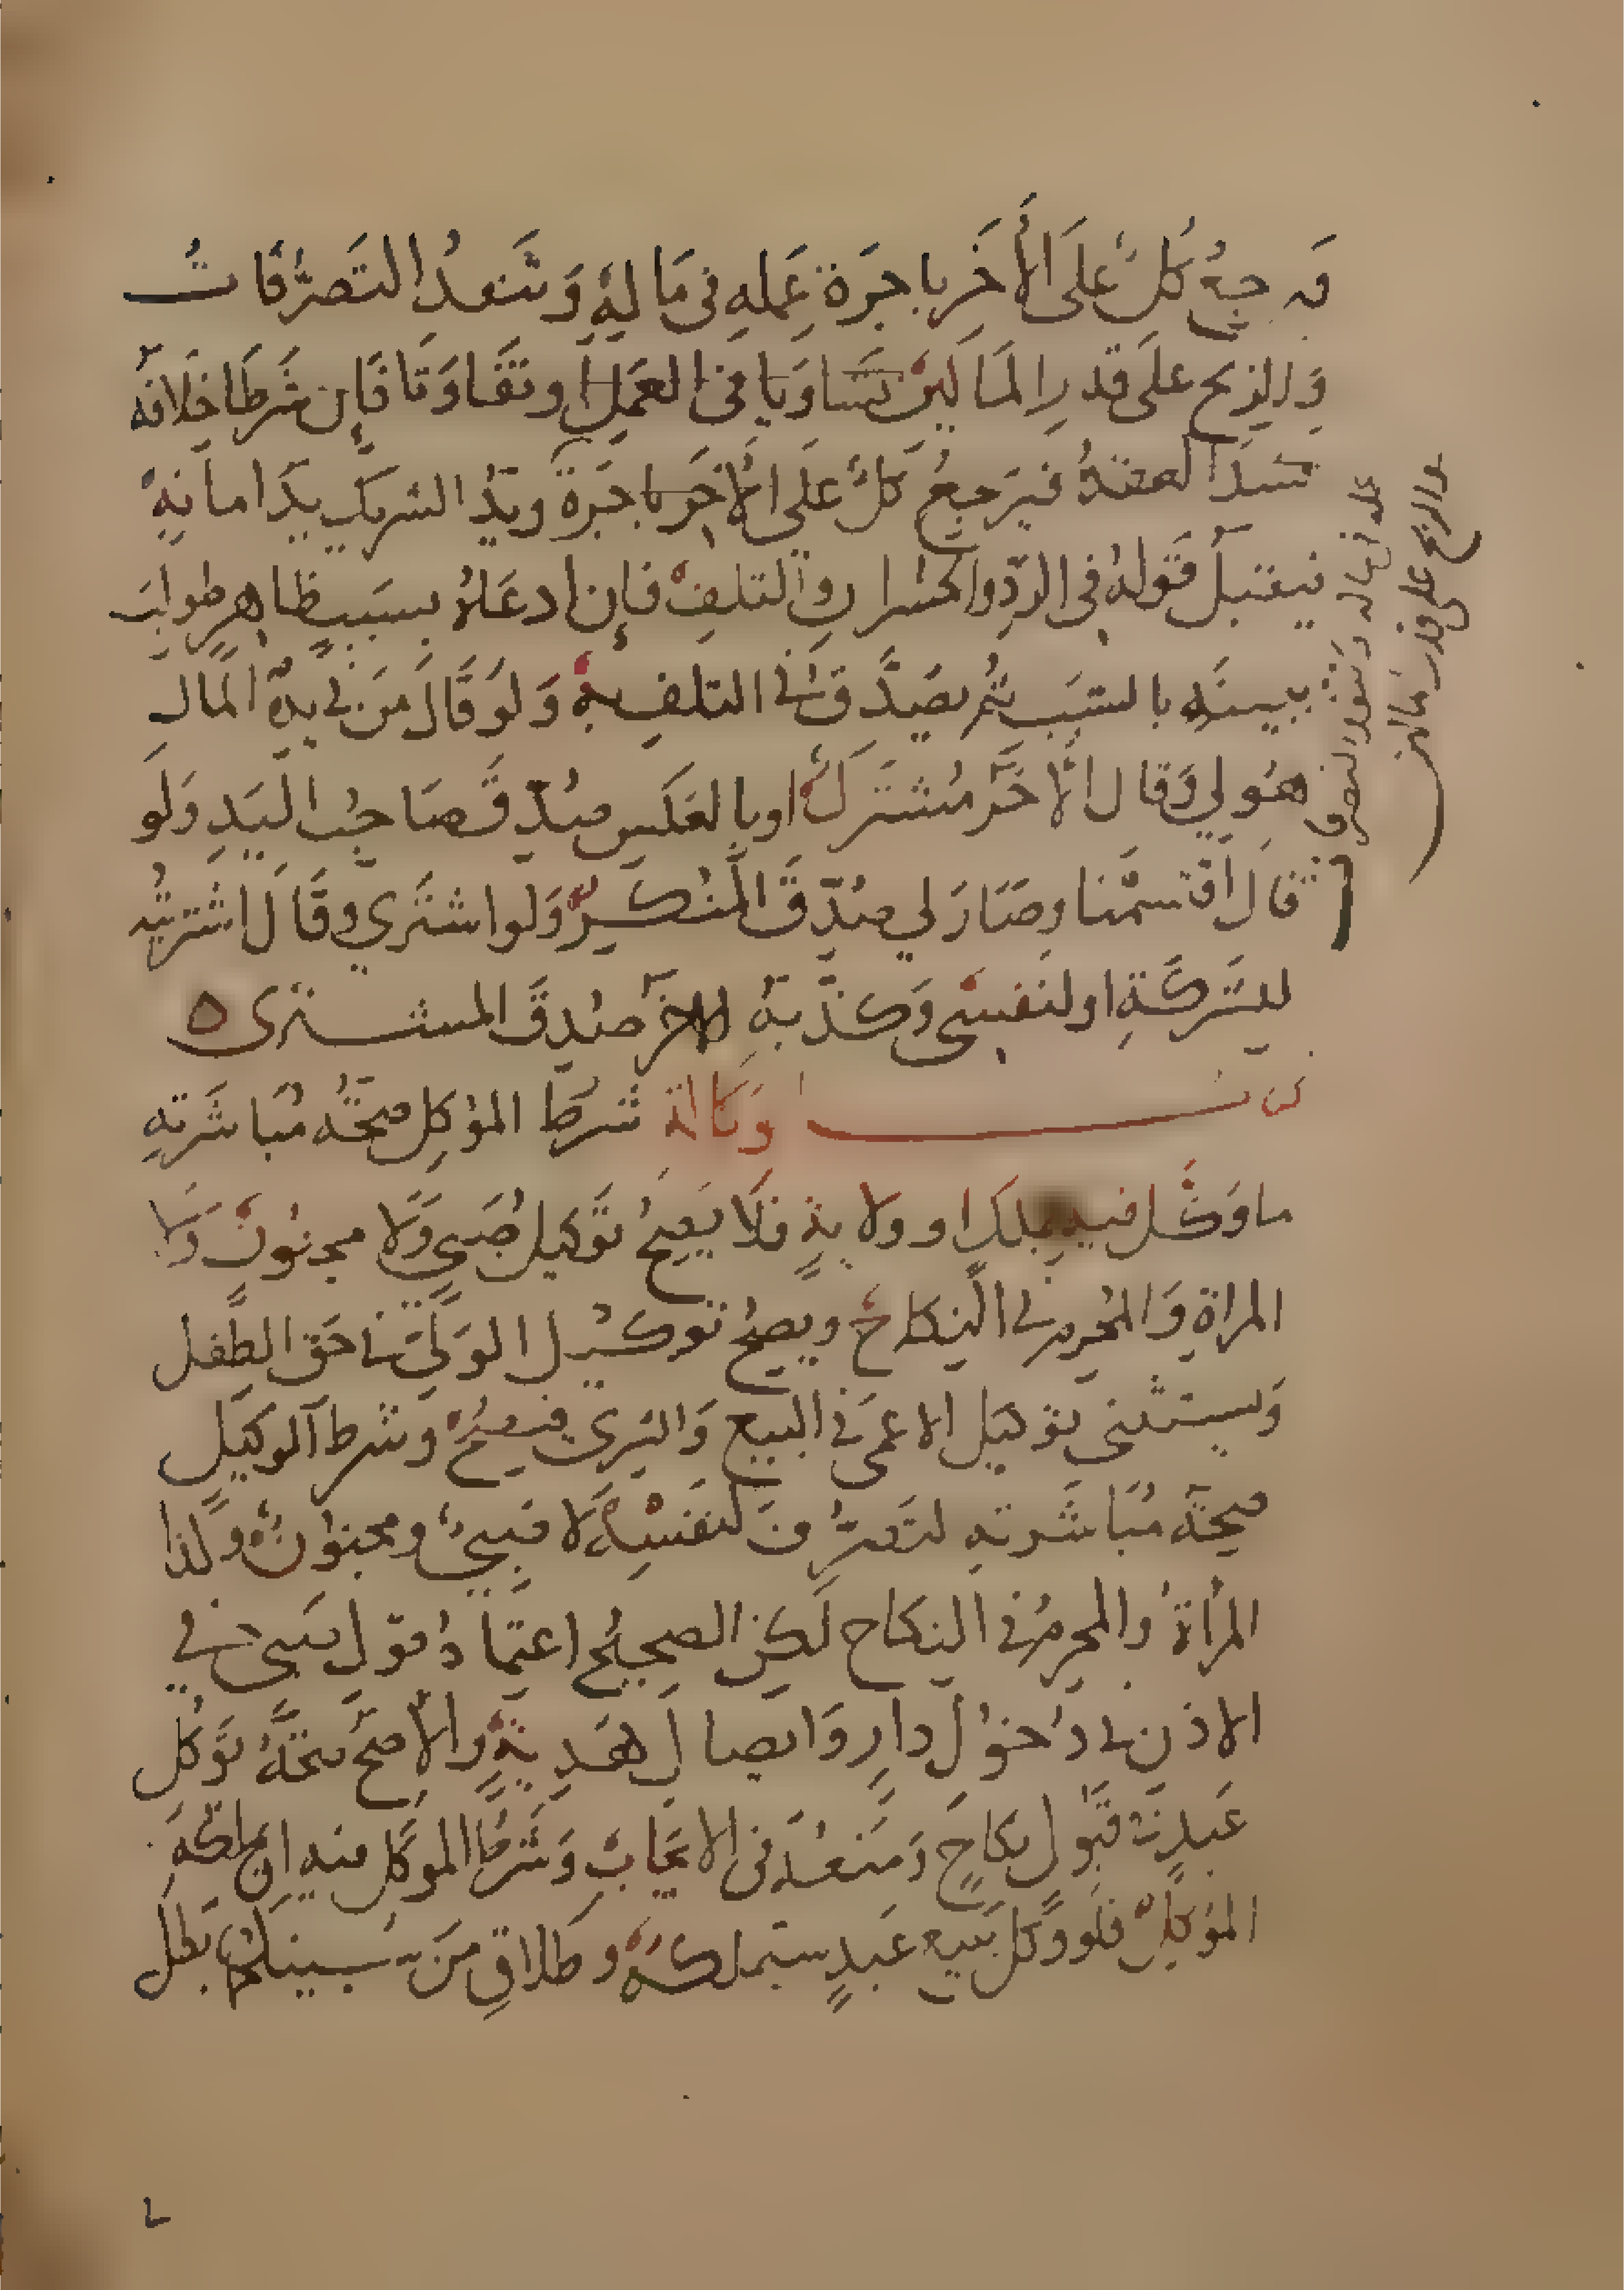 فيرجع كل على الأخر باجرة عمله في ماله وتنفذ التصرفات
والربح على قدر المالين تساويا في العمل او تفاوتا فإن شرطا خلافه
فسد العقد فيرجع كل على الأخر باجرة ويد الشريك يد امانة
فيقبل قوله في الرد والخسران والتلف فإن ادعاه بسبب ظاهر طولب
ببينة بالسبب ثم يصدق في التلف به ولو قال من في يده المال
هو لي وقال الأخر مشترك او بالعكس صدق صاحب اليد ولو
قال اقتسمنا وصار لي صدق المنكر ولو اشترى وقال اشتريته
للشركة او لنفسي وكذبه الاخر صدق المشتري ه
كتاب وكالة شرط الموكل صحة مباشرته
ما وكل فيه بملك او ولاية فلا يصح توكيل صبي ولا مجنون ولا
المراة والمحرم في النكاح ويصح توكيل الولي في حق الطفل
ويستثنى توكيل الاعمى في البيع والشرى فيصح وشرط الوكيل
صحة مباشرته لتصرف لنفسه لا صبي ومجنون وكذا
المرأة والمحرم في النكاح لكن الصحيح اعتماد قول صبي في
الاذن في دخول دار وايصال هدية والأصح صحة توكل
عبد في قبول نكاح ومنعه في الايجاب وشرط الموكل فيه ان يملكه
الموكل فلو وكل ببيع عبد سيملكه وطلاق من سينكحها بطل
عمله في ماله وتنفذ التصرف
والربح على قدر مالين